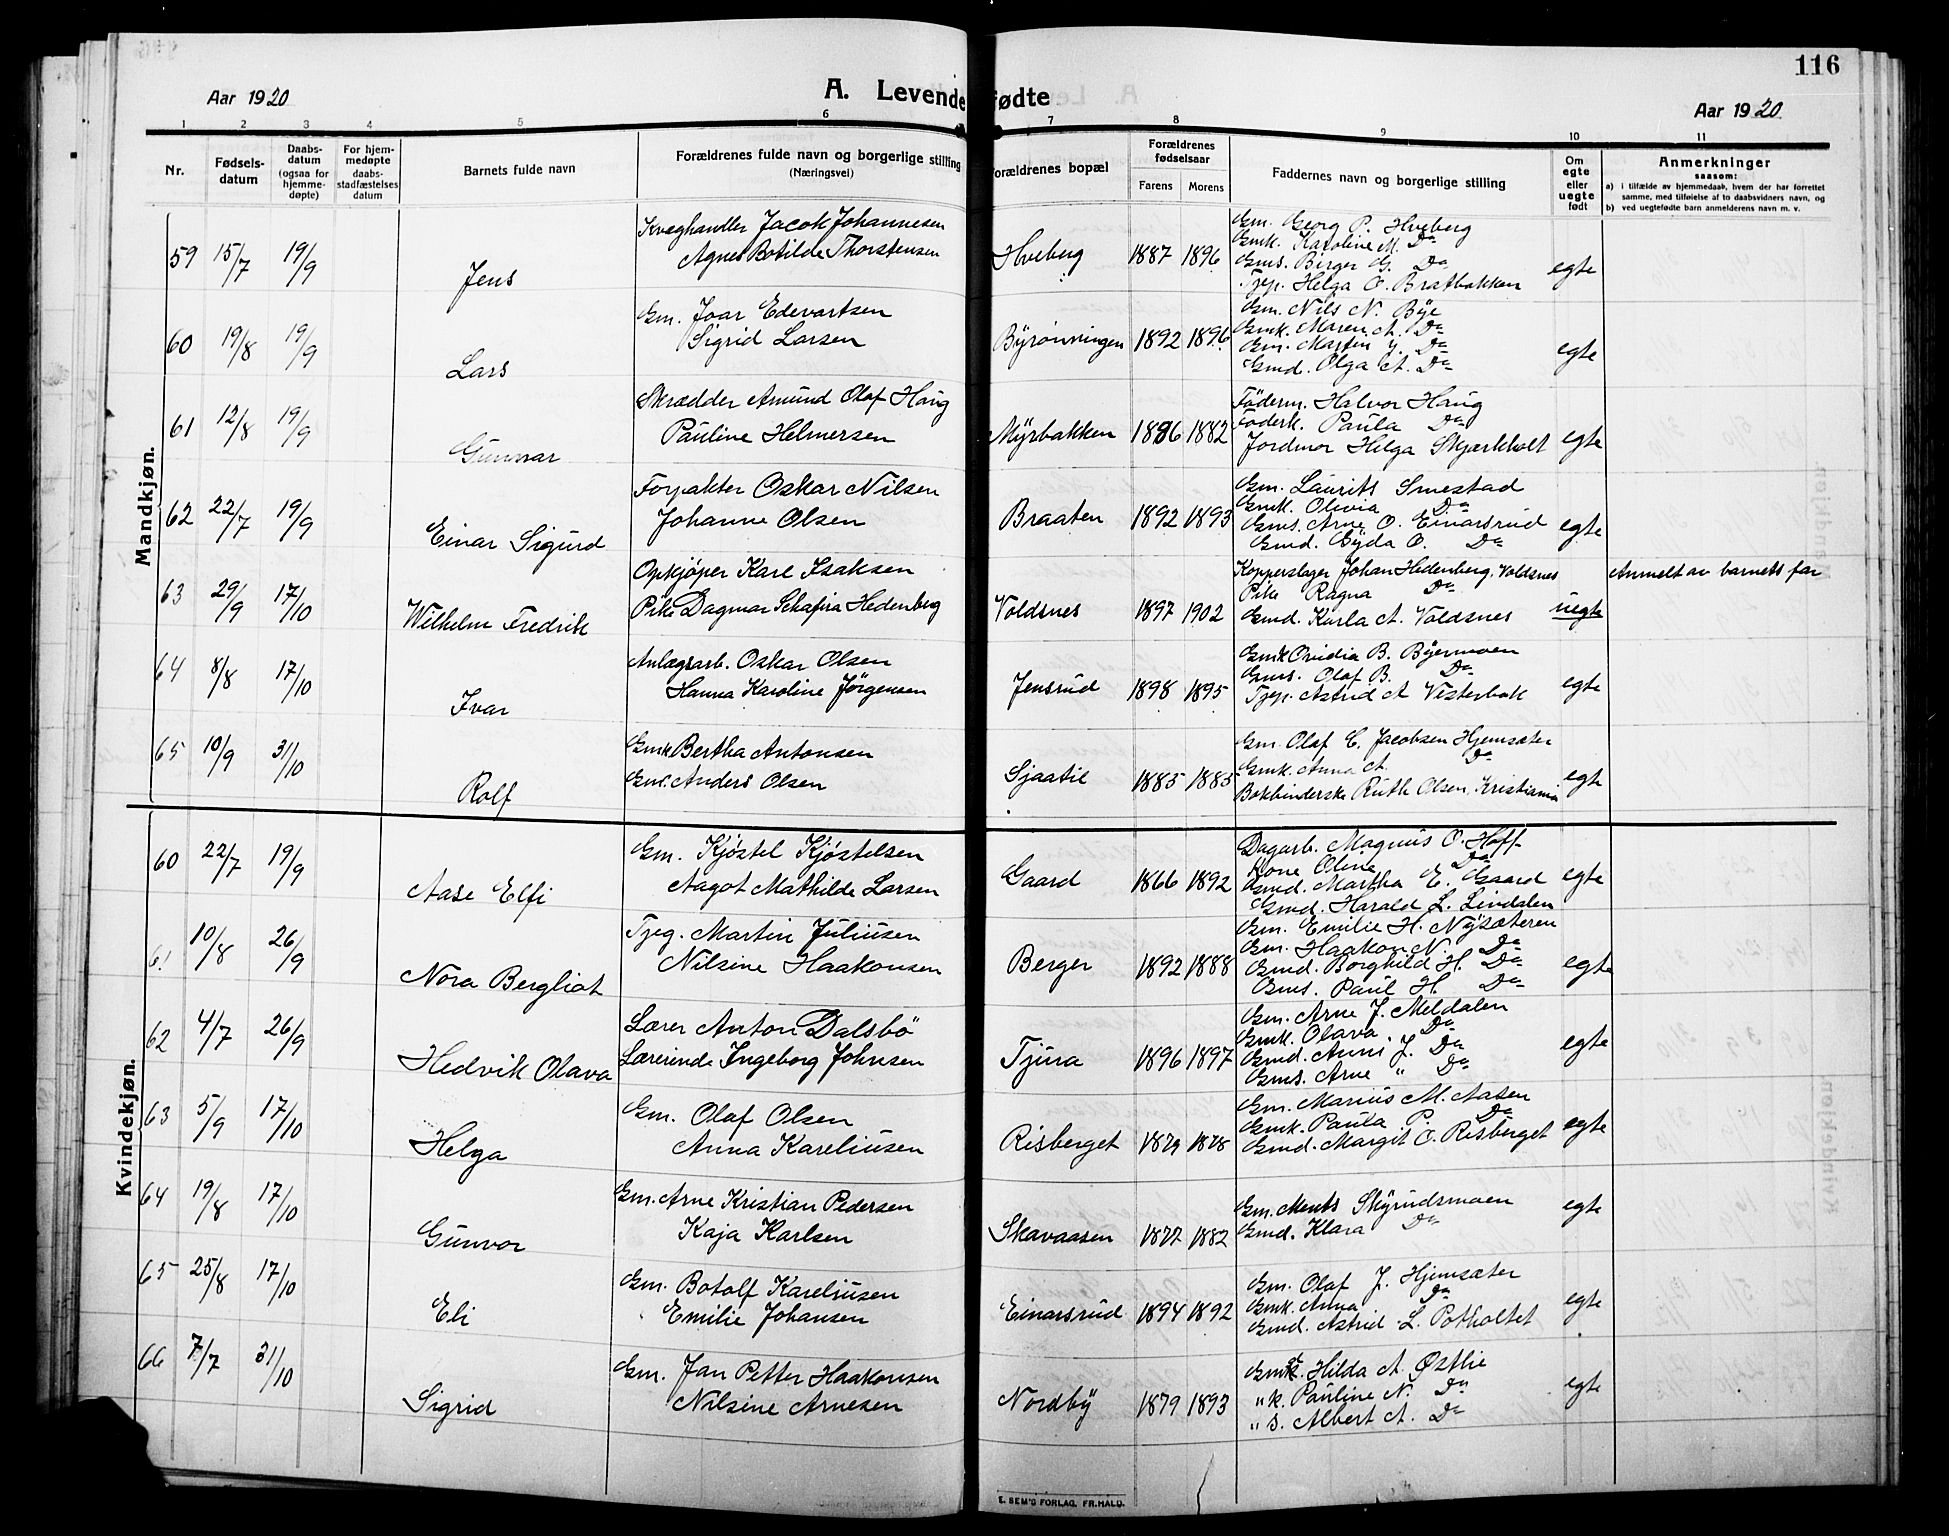 116
Aar 1920
A. Levendefødte
Aar 1920
1 2 3 4 5 6 7 8 9 10 11
Nr.
Fødsels-
datum
Daabs-
datum
(ogsaa for
hjemme-
døpte)
For hjem-
medøpte
daabs-
stadfæstelses
datum
Barnets fulde navn
Forældrenes fulde navn og borgerlige stilling
(Næringsvei)
Forældrenes bopæl
Forældrenes
fødselsaar
Farens Morens
Faddernes navn og borgerlige stilling
Om
egte
eller
uegte
født
Anmerkninger
saasom:
a) i tilfælde av hjemmedaab, hvem der har forrettet
samme, med tilføielse af to daabsvidners navn, og
b) ved uegtefødte barn anmelderens navn m. v.
Mandkjøn.
59 15/7 19/9 Jens
Kvæghandler Jacok Johannesen
Agnes Botilde Thorstensen
Hveberg 1887 1896
Gm. Georg P. Hveberg
Gmk. Karoline M. Do
Gms. Birger G. Do
Tjep. Helga O. Bratbakken
egte
60 19/8 19/9 Lars
Gm. Joar Edevartsen
Sigrid Larsen
Byrønningen 1892 1896
Gm. Nils N. Bye
Gmk. Maren A. Do
Gm. Martin J. Do
Gmd. Olga A. Do
egte
61 12/8 19/9 Gunnar
Skrædder Amund Olaf Haug
Pauline Helmersen
Myrbakken 1886 1882
Føderm. Halvor Haug
Føderk. Paula Do
Jordmor Helga Skjærkholt
egte
62 22/7 19/9 Einar Sigurd
Forpakter Oskar Nilsen
Johanne Olsen
Braaten 1892 1893
Gm. Laurits Smestad
Gmk. Olivia Do
Gms. Arne O. Einarsrud
Gmd. Eyda O. Do
egte
63 29/9 17/10 Wilhelm Fredrik
Opkjøper Karl Isaksen
Pike Dagmar Schafira Hedenberg
Voldsnes 1897 1902
Kopperslager Johan Hedenberg, Voldsnes
Pike Ragna Do
Gmd. Karla A. Voldsnes
uegte
Anmelt av barnets far
64 8/8 17/10 Ivar
Anlægsarb. Oskar Olsen
Hanna Karoline Jørgensen
Jensrud 1898 1895
Gmk Ovidia B. Byermoen
Gms. Olaf B. Do
Tjep. Astrid A Vesterbak
egte
65 10/9 31/10 Rolf
Gmk Bertha Antonsen
Gm. Anders Olsen
Sjaatil 1885 1885
Gm. Olaf C. Jacobsen Hjemsæter
Gmk. Anna A. Do
Bokbinderske Ruth Olsen, Kristiania
egte
Kvindekjøn.
60 22/7 19/9 Aase Elfi
Gm. Kjøstel Kjøstelsen
Aagot Mathilde Larsen
Gaard 1866 1892
Dagarb. Magnus O. Hoff
Kone Oline Do
Gmd. Martha E. Gaard
Gmd. Harald L. Lindalen
egte
61 10/8 26/9 Nora Bergliot
Tjeg. Martin Juliusen
Nilsine Haakonsen
Berger 1892 1888
Gm. Emilie H. Nysæteren
Gm. Haakon N. Do
Gmd. Borghild H. Do
Gms. Paul H. Do
egte
62 4/7 26/9 Hedvik Olava
Lærer Anton Dalsbö
Lærerinde Ingeborg Johnsen
Tjura 1896 1897
Gm. Arne J. Meldalen
Gmk. Olava Do
Gmd. Anni J. Do
Gms. Arne " Do
egte
63 5/9 17/10 Helga
Gm. Olaf Olsen
Anna Kareliusen
Risberget 1879 1878
Gm. Marius M. Aasen
Gmk. Paula P. Do
Gmd. Margit O. Risberget
egte
64 19/8 17/10 Gunvor
Gm. Arne Kristian Pedersen
Kaja Karlsen
Skavaasen 1877 1882
Gm. Ments Skyrudsmoen
Gmd. Klara Do
egte
65 25/8 17/10 Eli
Gm. Botolf Kareliusen
Emilie Johansen
Einarsrud 1894 1892
Gm. Olaf J. Hjemsæter
Gmk. Anna Do
Gmd. Astrid L. Potholtet
egte
66 7/7 31/10 Sigrid
Gm. Jan Petter Haakonsen
Nilsine Arnesen
Nordby 1879 1893
Gmk. Hilda A. Østlie
" k. Pauline N. Do
" s. Albert A. Do
egte
E. SEM'S FORLAG, FR.HALD.